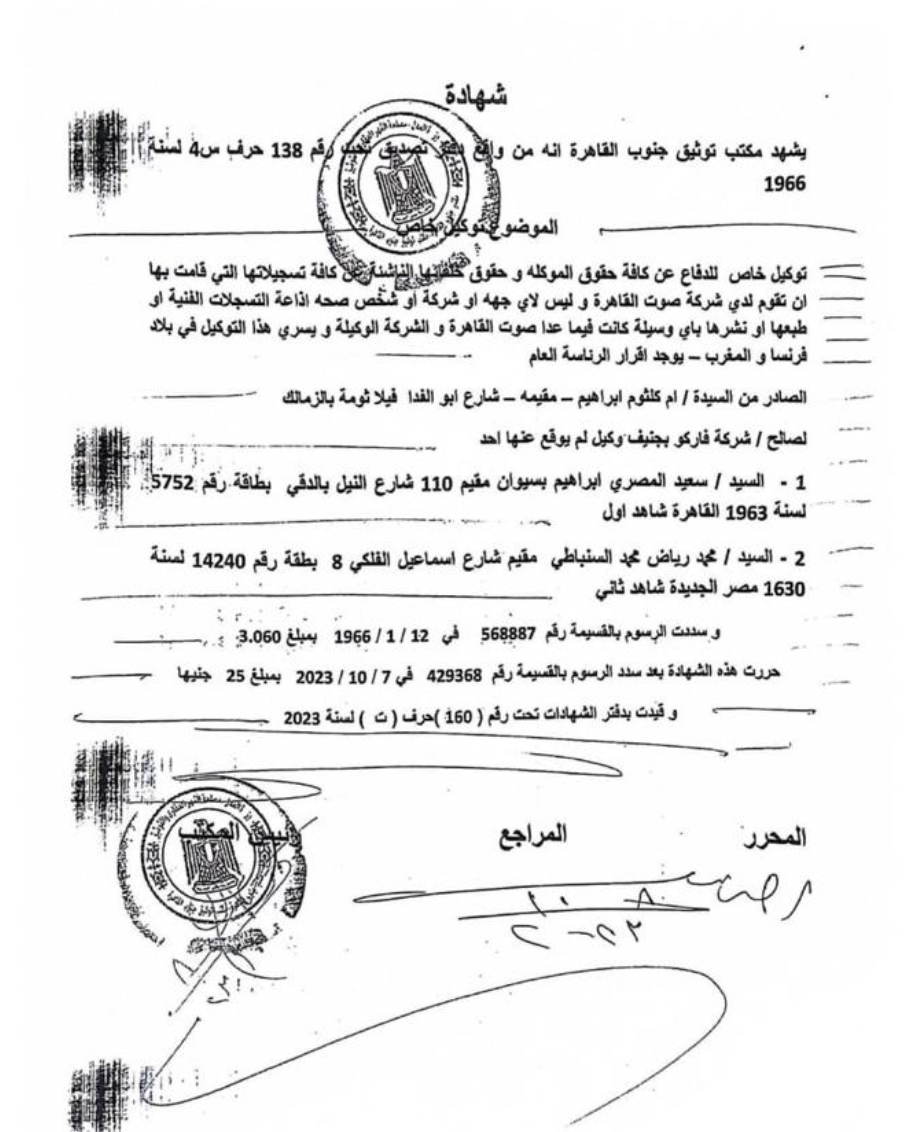 شهادة
يشهد مكتب توثيق جنوب القاهرة انه من واقع دفتر تصديق تحت رقم 138 حرف س4 لسنة
1966
الموضوع توكيل خاص
توكيل خاص للدفاع عن كافة حقوق الموكله و حقوق خلفائها الناشئة عن كافة تسجيلاتها التي قامت بها
ان تقوم لدي شركة صوت القاهرة و ليس لاي جهه او شركة او شخص صحه اذاعة التسجلات الفنية او
طبعها او نشرها باي وسيلة كانت فيما عدا صوت القاهرة و الشركة الوكيلة و يسري هذا التوكيل في بلاد
فرنسا و المغرب – يوجد اقرار الرناسة العام
الصادر من السيدة / ام كلثوم ابراهيم – مقيمه – شارع ابو الفدا فيلا ثومة بالزمالك
لصالح / شركة فاركو بجنيف وكيل لم يوقع عنها احد
1 - السيد / سعيد المصري ابراهيم بسيوان مقيم 110 شارع النيل بالدقي بطاقة رقم 5752
لسنة 1963 القاهرة شاهد اول
2 - السيد / محمد رياض محمد السنباطي مقيم شارع اسماعيل الفلكي 8 بطقة رقم 14240 لسنة
1630 مصر الجديدة شاهد ثاني
و سددت الرسوم بالقسيمة رقم 568887 في 12 / 1 / 1966 بمبلغ 3.060
حررت هذه الشهادة بعد سدد الرسوم بالقسيمة رقم 429368 في 7 / 10 / 2023 بمبلغ 25 جنيها
و قيدت بدفتر الشهادات تحت رقم ( 160 )حرف ( ت ) لسنة 2023
المحرر المراجع رئيس المكتب
٨ ١٠
٢٠٢٣